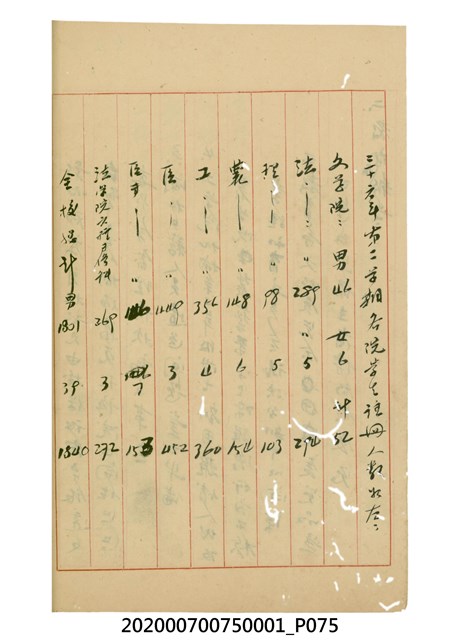 三十六年第二学期各院学生註冊人數如左：
文学院： 男46 女6 计52
法〃： 〃289 〃5 294
理〃 〃98 5 103
農〃 〃148 6 154
工〃 〃356 4 360
医〃 〃449 3 452
医專〃 〃146 7 153
法学院 269 3 272
全校总計 男1801 39 1840
202000700750001_P075